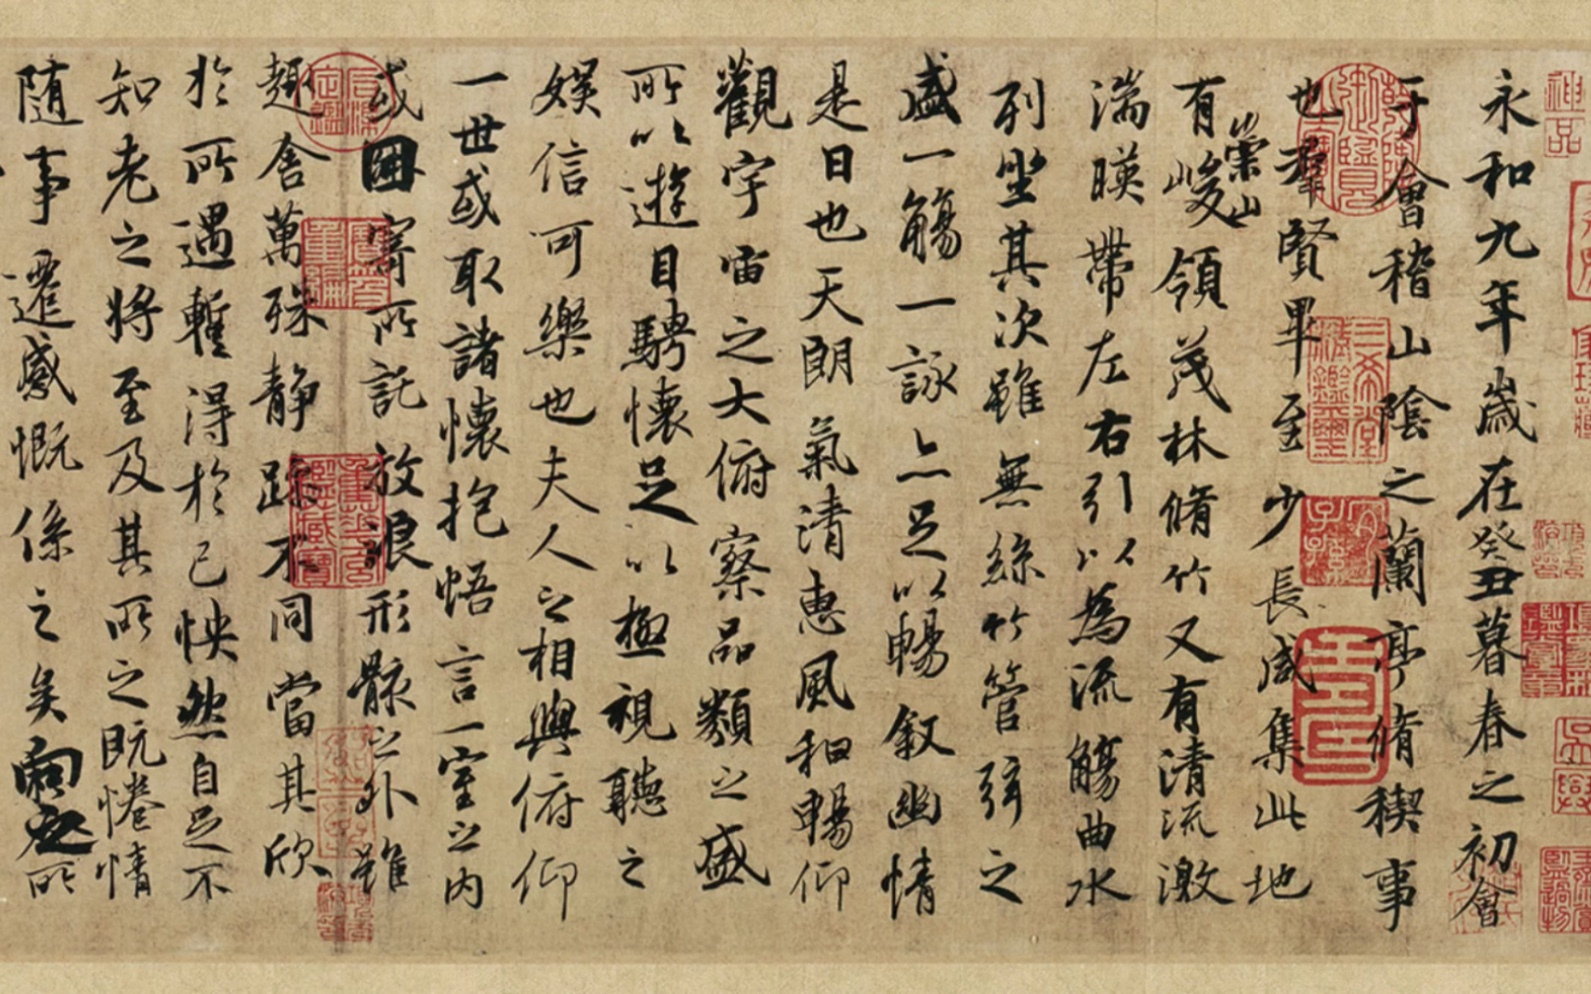 永和九年歲在癸丑暮春之初會
于會稽山陰之蘭亭脩稧事
也羣賢畢至少長咸集此地
有崇山峻領茂林脩竹又有清流激
湍暎帶左右引以為流觴曲水
列坐其次雖無絲竹管弦之
盛一觴一詠亦足以暢叙幽情
是日也天朗氣清惠風和暢仰
觀宇宙之大俯察品類之盛
所以遊目騁懷足以極視聽之
娛信可樂也夫人之相與俯仰
一世或取諸懷抱悟言一室之內
或因寄所託放浪形骸之外雖
趣舍萬殊静躁不同當其欣
於所遇暫得於己怏然自足不
知老之將至及其所之既惓情
随事遷感慨係之矣向之所
神品
三希堂精鑑璽